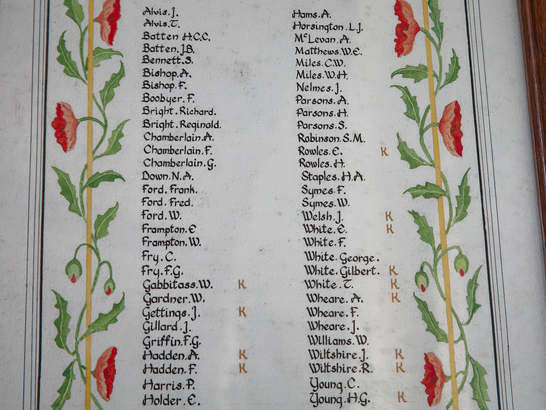 Alvis. J.
Alvis. T.
Batten H.C.C.
Batten. J.B.
Bennett. S.
Bishop. A.
Bishop. F.
Boobyer. F.
Bright. Richard.
Bright. Reginald.
Chamberlain. A.
Chamberlain. F.
Chamberlain. G.
Down. N.A.
Ford. Frank.
Ford. Fred.
Ford. W.
Frampton. E
Frampton. W.
Fry. C.
Fry. F.G.
Gabbitass. W. K
Gardner. W.
Gettings. J. K
Gillard. J.
Griffin. F.G.
Hadden. A. K
Hadden. F. K
Harris. P.
Holder. E.
Hams. A.
Horsington. L.J.
McLevan. A.
Matthews. W.E.
Miles. C.W.
Miles. W.H.
Nelmes. J.
Parsons. A.
Parsons. H.
Parsons. S.
Robinson. S.M.
Rowles. E. K
Rowles. H.
Staples. H.A.
Symes. F.
Symes. W.
Welsh. J. K
White. E. K
White. F.
White. George.
White. Gilbert. K
White. T. K
Wheare. A. K
Wheare. F.
Wheare. J.
Williams. W.
Wiltshire. J. K
Wiltshire. R. K
Young. C.
Young. H.G. K